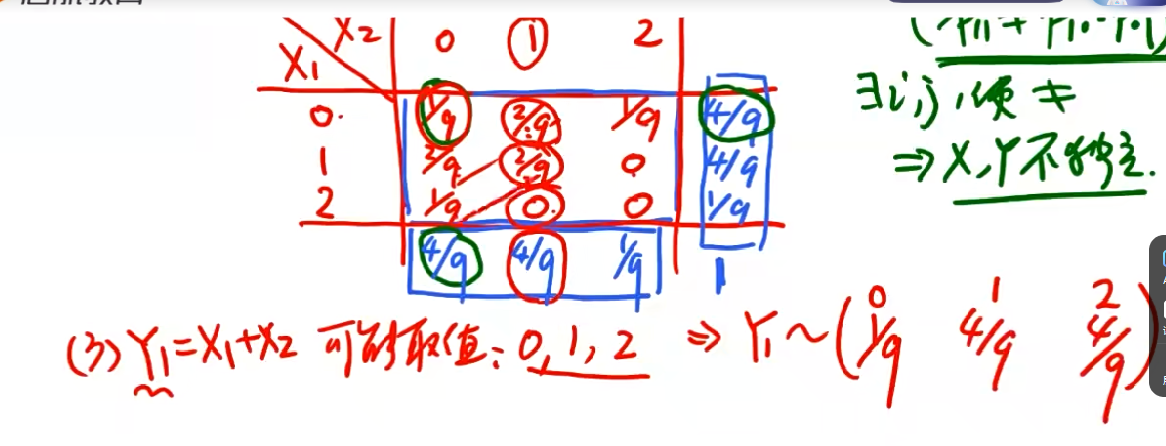 X₂ 0 1 2
X₁
0 1/9 2/9 1/9 4/9
1 2/9 2/9 0 4/9
2 1/9 0 0 1/9
4/9 4/9 1/9 1
∃i,j,使≠
⇒X,Y不独立.
(3) Y₁=X₁+X₂ 可能取值:0,1,2 ⇒ Y₁~(
0 1 2
1/9 4/9 4/9
)